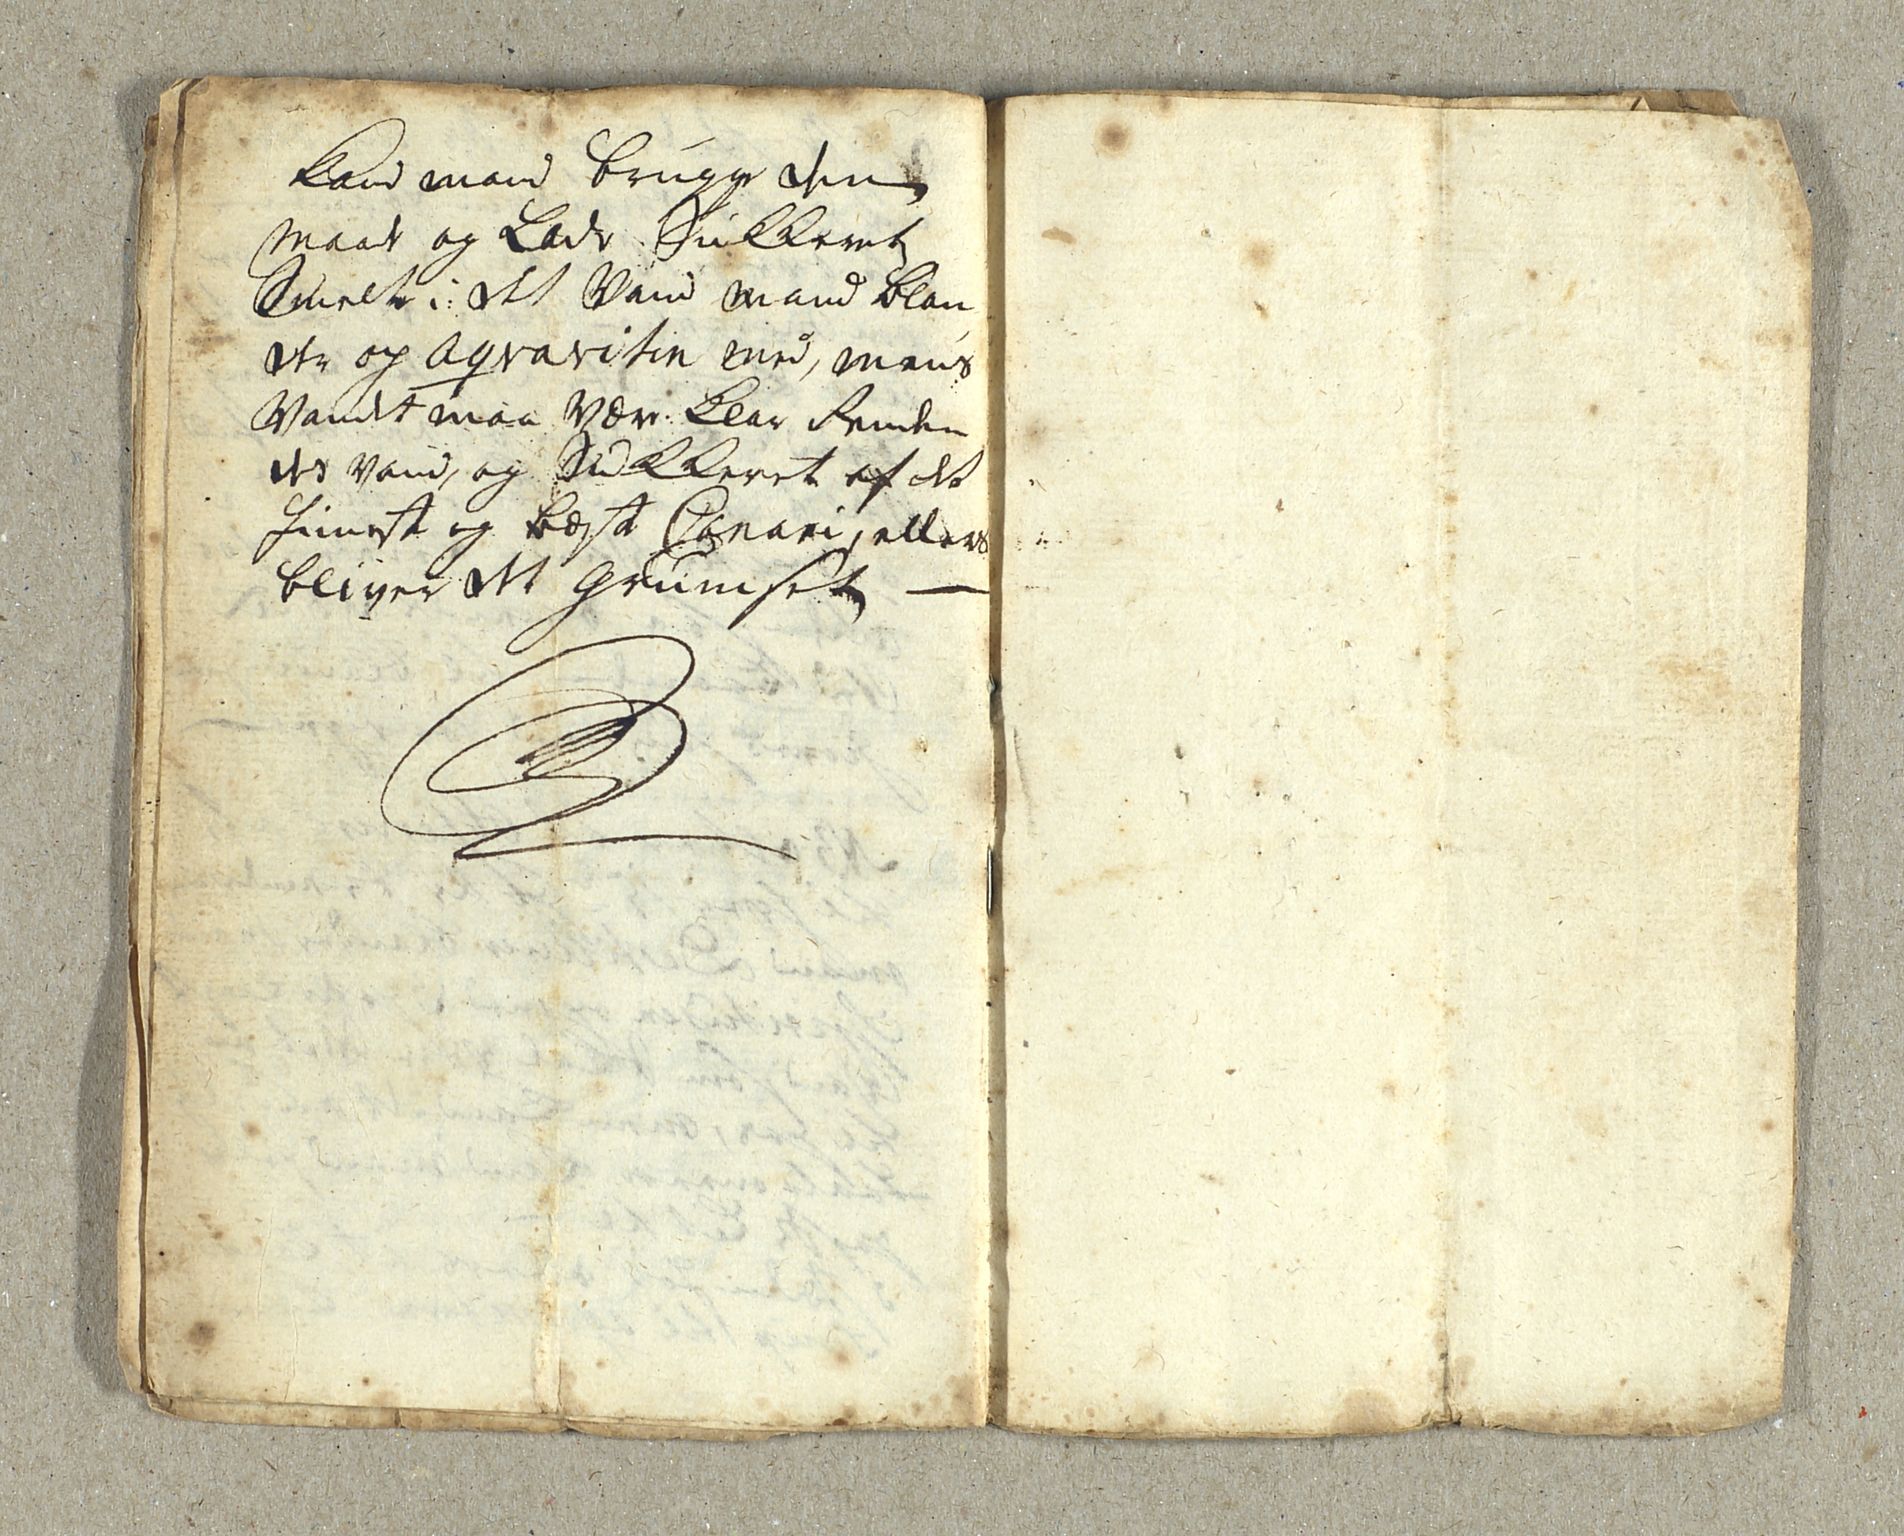 Kand mand brugge denne
maade og Lade Sukkeret
Smelte i det Vand mand blan
der op aqvavitin med, mens
Vandet maa Være klar Renden
des vand, og Sukkeret af det
fineste og bæste Canari, ellers
bliver det grumset —